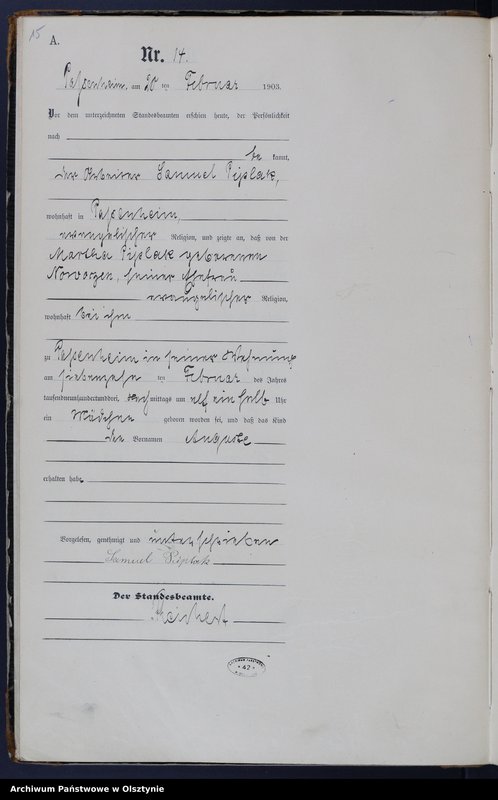 15
A.
Nr. 14.
am 20 ten Februar 1903.
Vor dem unterzeichneten Standesbeamten erschien heute, der Persönlichkeit
nach
be kannt,
der Arbeiter Samuel Piplak,
wohnhaft in
evangelischer Religion, und zeigte an, daß von der
Martha Piplak geborenen
seiner Ehefrau
evangelischer Religion,
wohnhaft bei ihm
zu in seiner Wohnung
am siebenzehn ten Februar des Jahres
tausendneunhundertunddrei, nachmittags um elf ein halb Uhr
ein Mädchen geboren worden sei, und daß das Kind
den Vornamen Auguste
erhalten habe.
Vorgelesen, genehmigt und unterschrieben
Samuel Piplak
Der Standesbeamte.
42
Archiwum Państwowe w Olsztynie